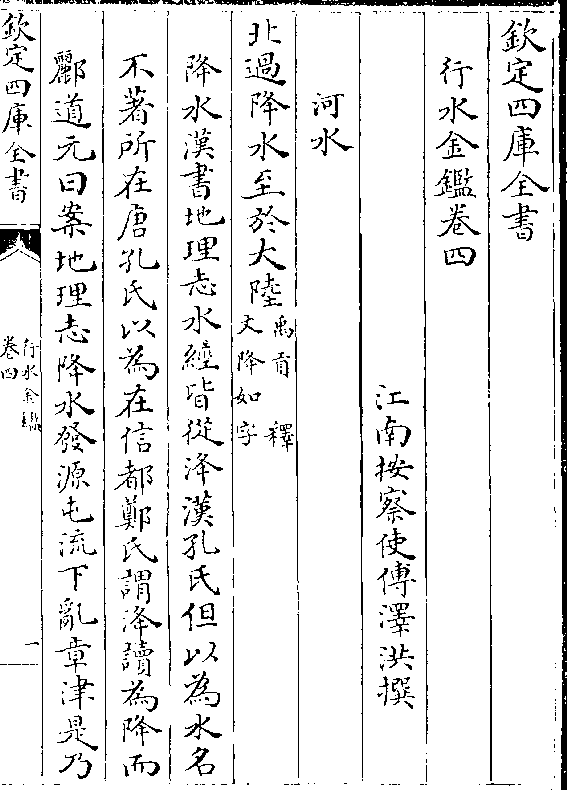 欽定四庫全書
行水金鑑卷四
江南按察使傅澤洪撰
河水
北過降水至於大陸禹貢 釋
文降如字
降水漢書地理志水經皆從洚漢孔氏但以為水名
不著所在唐孔氏以為在信都鄭氏謂洚讀為降而
酈道元曰案地理志降水發源屯流下亂章津是乃
欽定四庫全書
行水金鑑
卷四
一